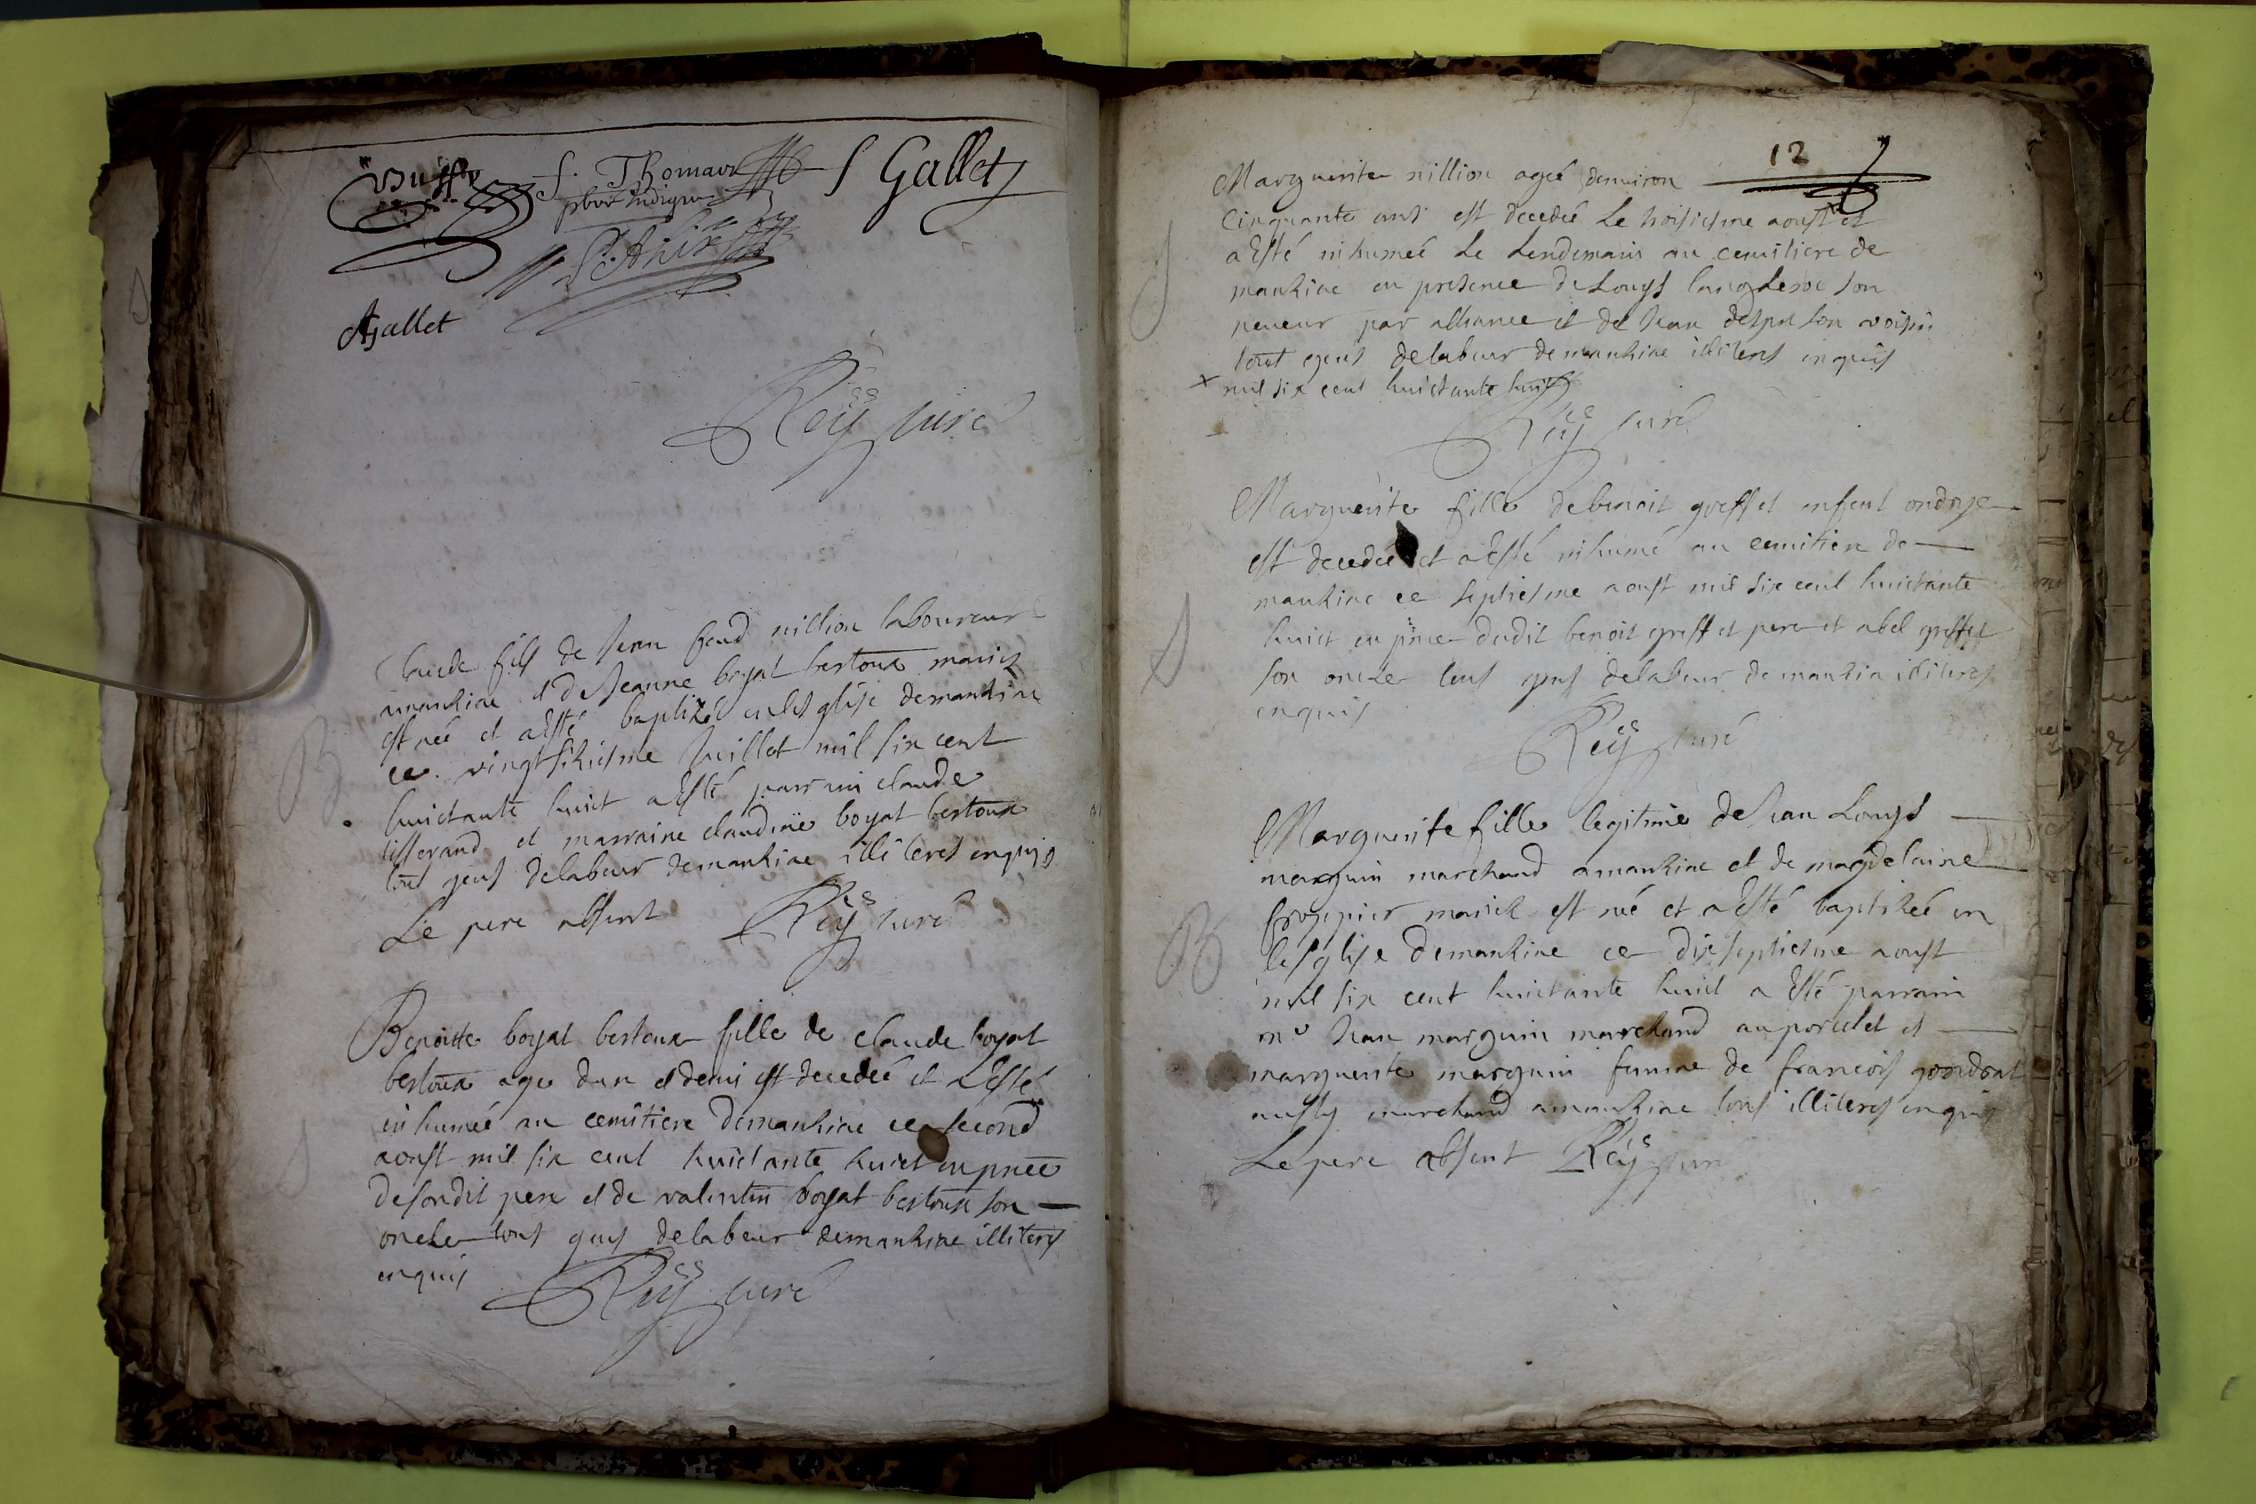 S. Thomas S Gallet
pbre Indigne
AGallet
Rey curé
Claude fils de Jean feaud nillion laboureur
a mankine et de Jeanne boyat bestoux mariez
est néé et aésté baptizéé en lesglise demankine
ce vingtsixiesme Juillet mil six cent
huictante huict aésté parrain claude
tisserand et marraine claudine boyat bestoux
tous gens delabeur demankine illiteres enquis
Le pere absent Rey curé
Benoitte boyat bestoux fille de claude boyat
bestoux agee dun et demi est decedéé et aesté
inhuméé au cemitiere demankine ce second
aoust mil six cent huictante huict en pnce
desondit pere et de valentin boyat bestoux son
oncle tous gens delabeur demankine illiteres
enquis Rey curé
12
Marguerite nillion agéé denuiron
cinquante ans est decedéé Le troisiesme aoust et
aésté inhuméé Le Lendemain au cemitiere de
mankine en presence de Louys son
neueur par alliance et de Jean son voisin
tout gens delabeur demankine illiteres enquis
x mil six cent huictante huit
Rey curé
Marguerite fille debenoit greffet enfent ondoye
est decedéé et aésté inhumé au cemitiere de
mankine ce septiesme aoust mil six cent huictante
huict en pnce dudit benoit greffet pere et abel greffet
son oncle tous gens delabeur de mankin illiteres
enquis
Rey curé
Marguerite fille legitime de Jean Louys
marguin marchand amankine et de magdelaine
froppier mariez est néé et aésté baptizéé en
lesglise demankine ce dixseptiesme aoust
mil six cent huictante huict a ésté parrain
mr Jean marguin marchand auporcelet et
marguerite marguin femme de francois gondrat
aussy marchand amankine tous illiteres enquis
Le pere absent Rey curé